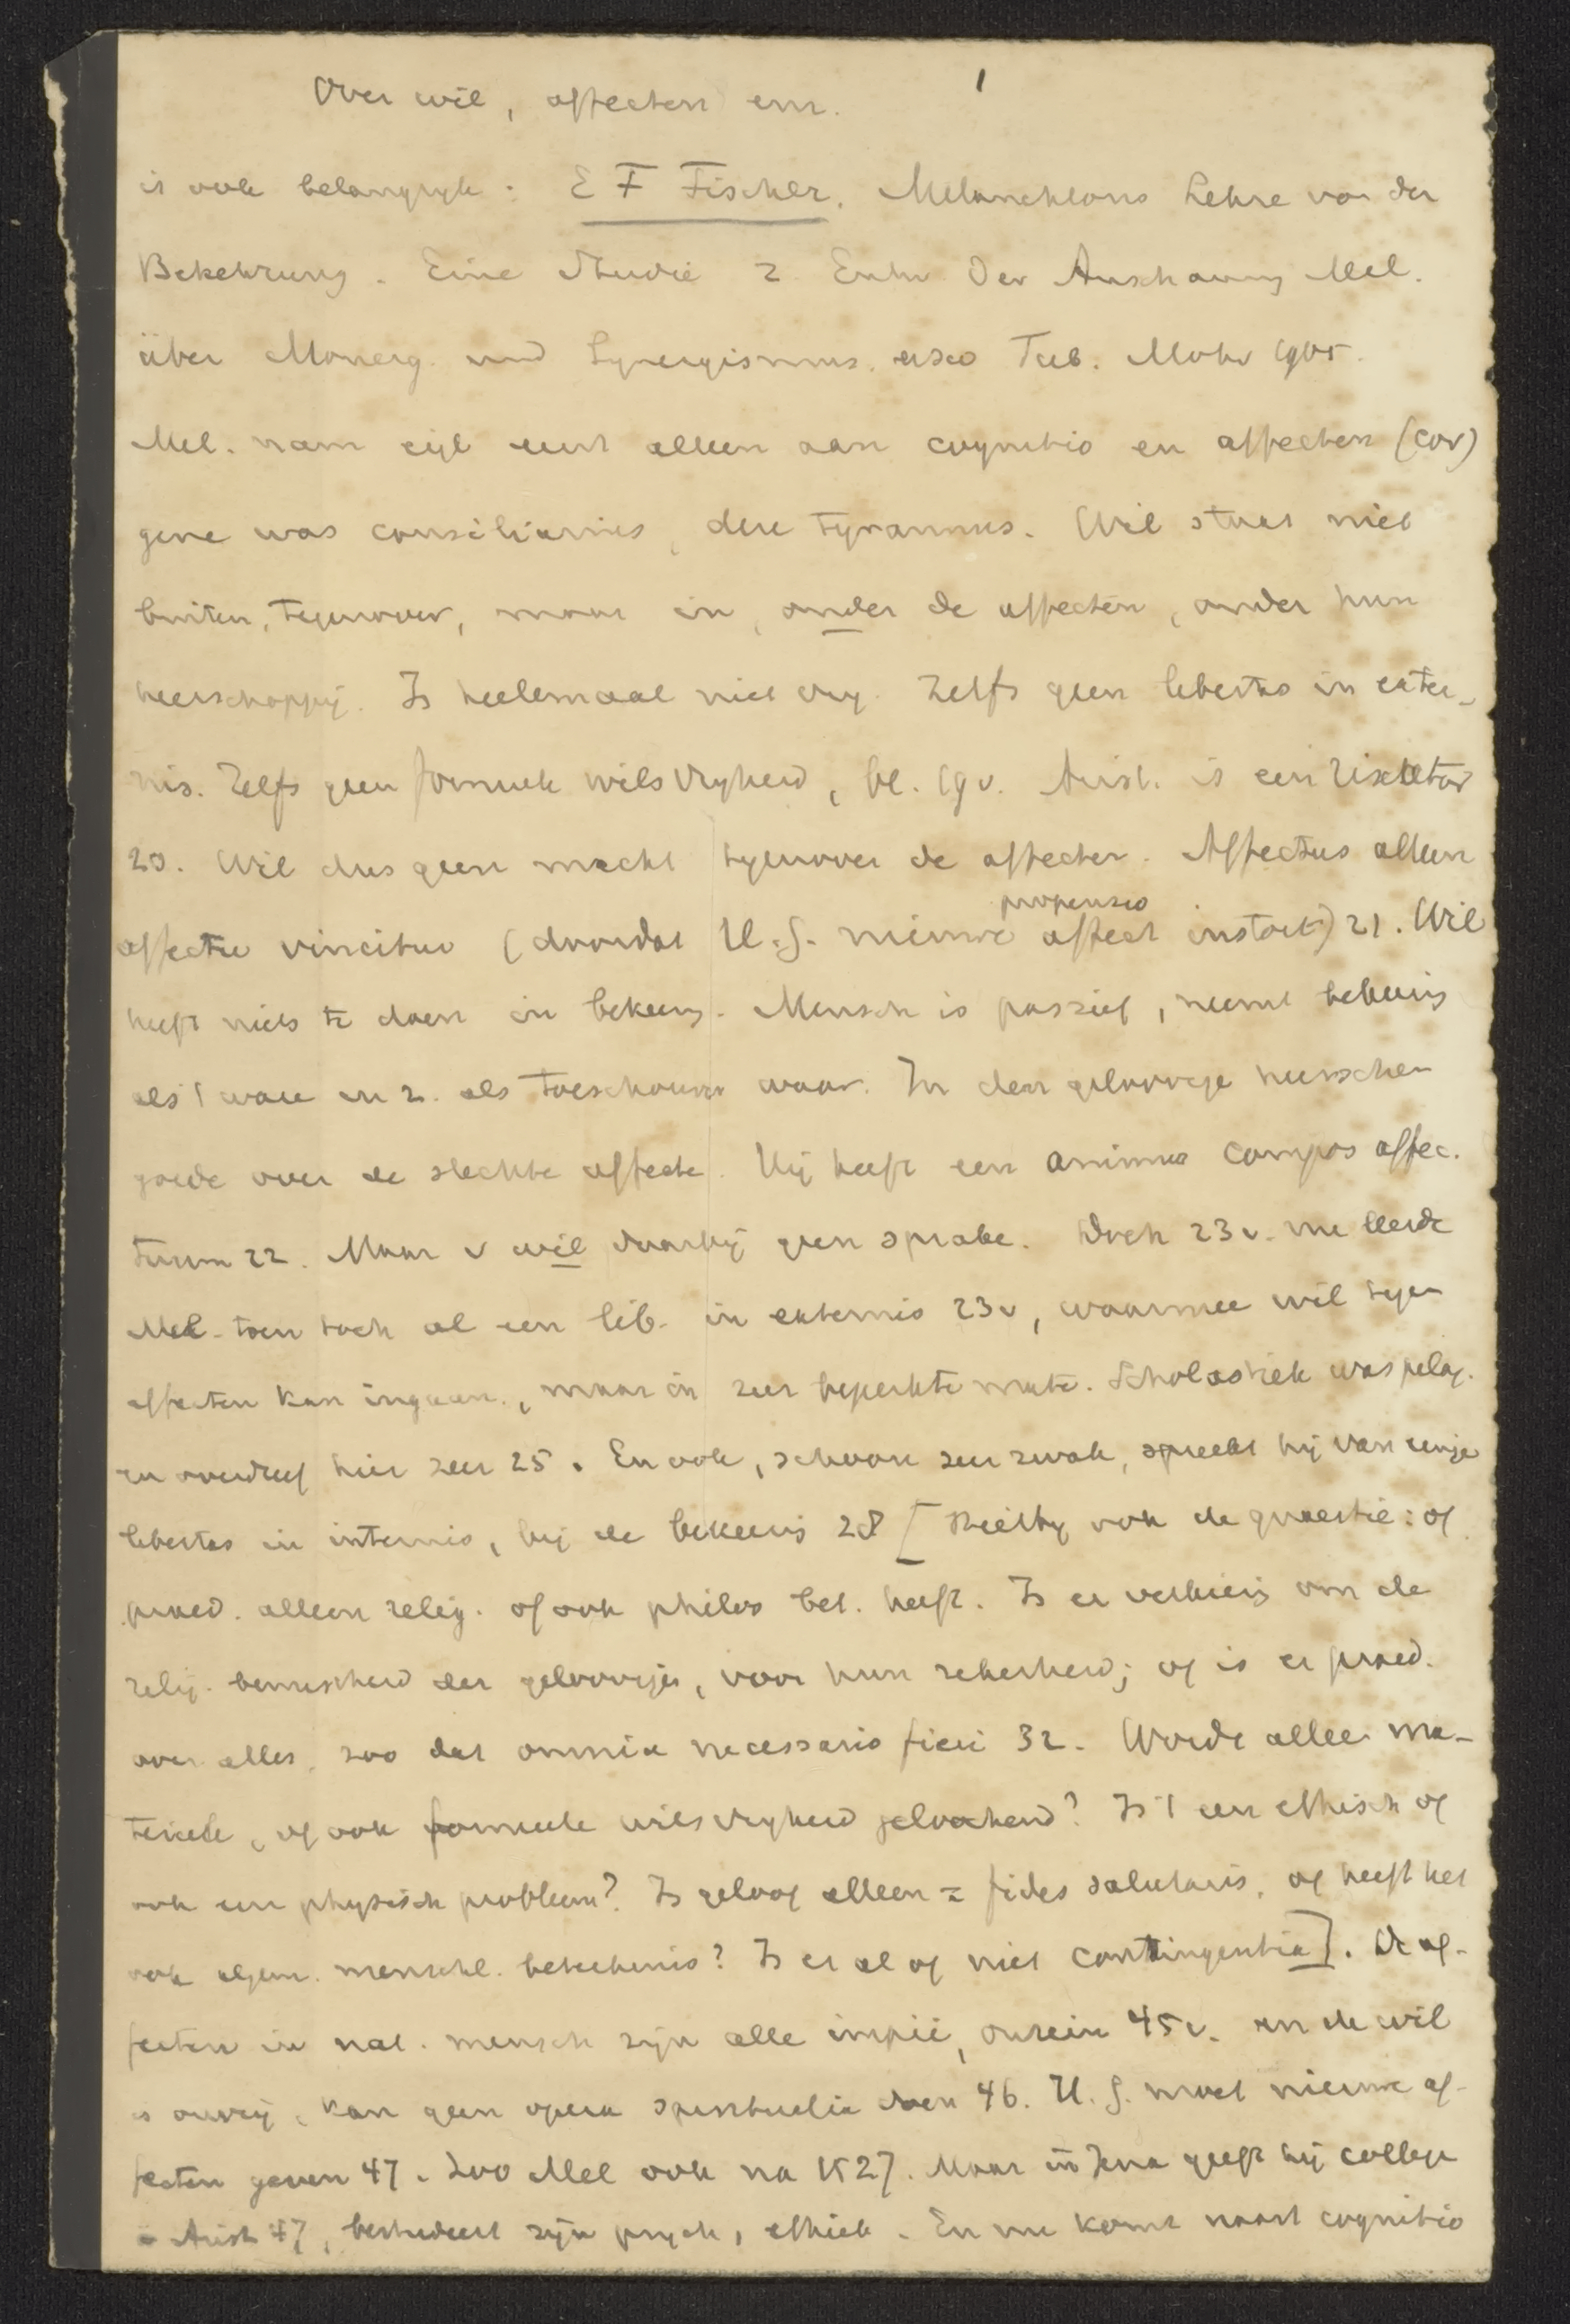 1
Over wil, affecten enz.
is ook belangrijk: E F Fischer. Melanchtons Lehre von der
Bekehrung. Eine Studie z. Entw der Anschauung Mel.
über Monerg. und Synergismus. Tüb. Mohr 1905.
Mel. nam eigl eerst alleen aan cognitio en affecten (cor)
gene was consiliarius, deze tyrannus. Wil staat niet
buiten, tegenover, maar in, onder de affecten, onder hun
heerschappij. Is heelemaal niet vrij. Zelfs geen libertas in exter-
nis. Zelfs geen formeele wilsvrijheid, bl. 19 v. Arist. is een
20. Wil dus geen macht tegenover de affecten. Affectus alleen
affectu vincitur (doordat H.G. nieuwe affect propensio instort) 21. Wil
heeft niets te doen in bekeerg. Mensch is passief, neemt bekeerig
als 't ware en z. als toeschouwer waar. In den geloovige heerschen
goede over de slechte affecte. Hij heeft een animus compos affec-
tuum 22. Maar v wil daarbij geen sprake. Doch 23 v. nu leerde
Mel. toen toch al een lib. in externis 23 v, waarmee wil tegen
affecten kan ingaan, maar in zeer beperkte mate. Scholastiek was pelag.
en overdreef hier zeer 25. En ook, schoon zeer zwak, spreekt hij van eenige
libertas in internis, bij de bekeerig 28 [ hierbij ook de quaestie: of
praed. alleen relig. of ook philos bet. heeft. Is er verkiezig om de
relig. bewustheid der geloovigen, voor hun zekerheid; of is er praed.
over alles, zoo dat omnia necessario fieri 32. Wordt alleen ma-
terieele, of ook formeele wilsvrijheid geloochend? Is 't een ethisch of
ook een physisch probleem? Is geloof alleen = fides salutaris, of heeft het
ook algem. menschl. beteekenis? Is er al of niet contingentia]. De af-
fecten in nat. mensch zijn alle impii, onrein 45 v. en de wil
is onvrij, kan geen opera spiritualia doen 46. H.G. moet nieuwe af-
fecten geven 47. Zoo Mel ook na 1527. Maar in Jena geeft hij college
Arist 47, bestudeert zijn psych, ethiek. En nu komt naast cognitio